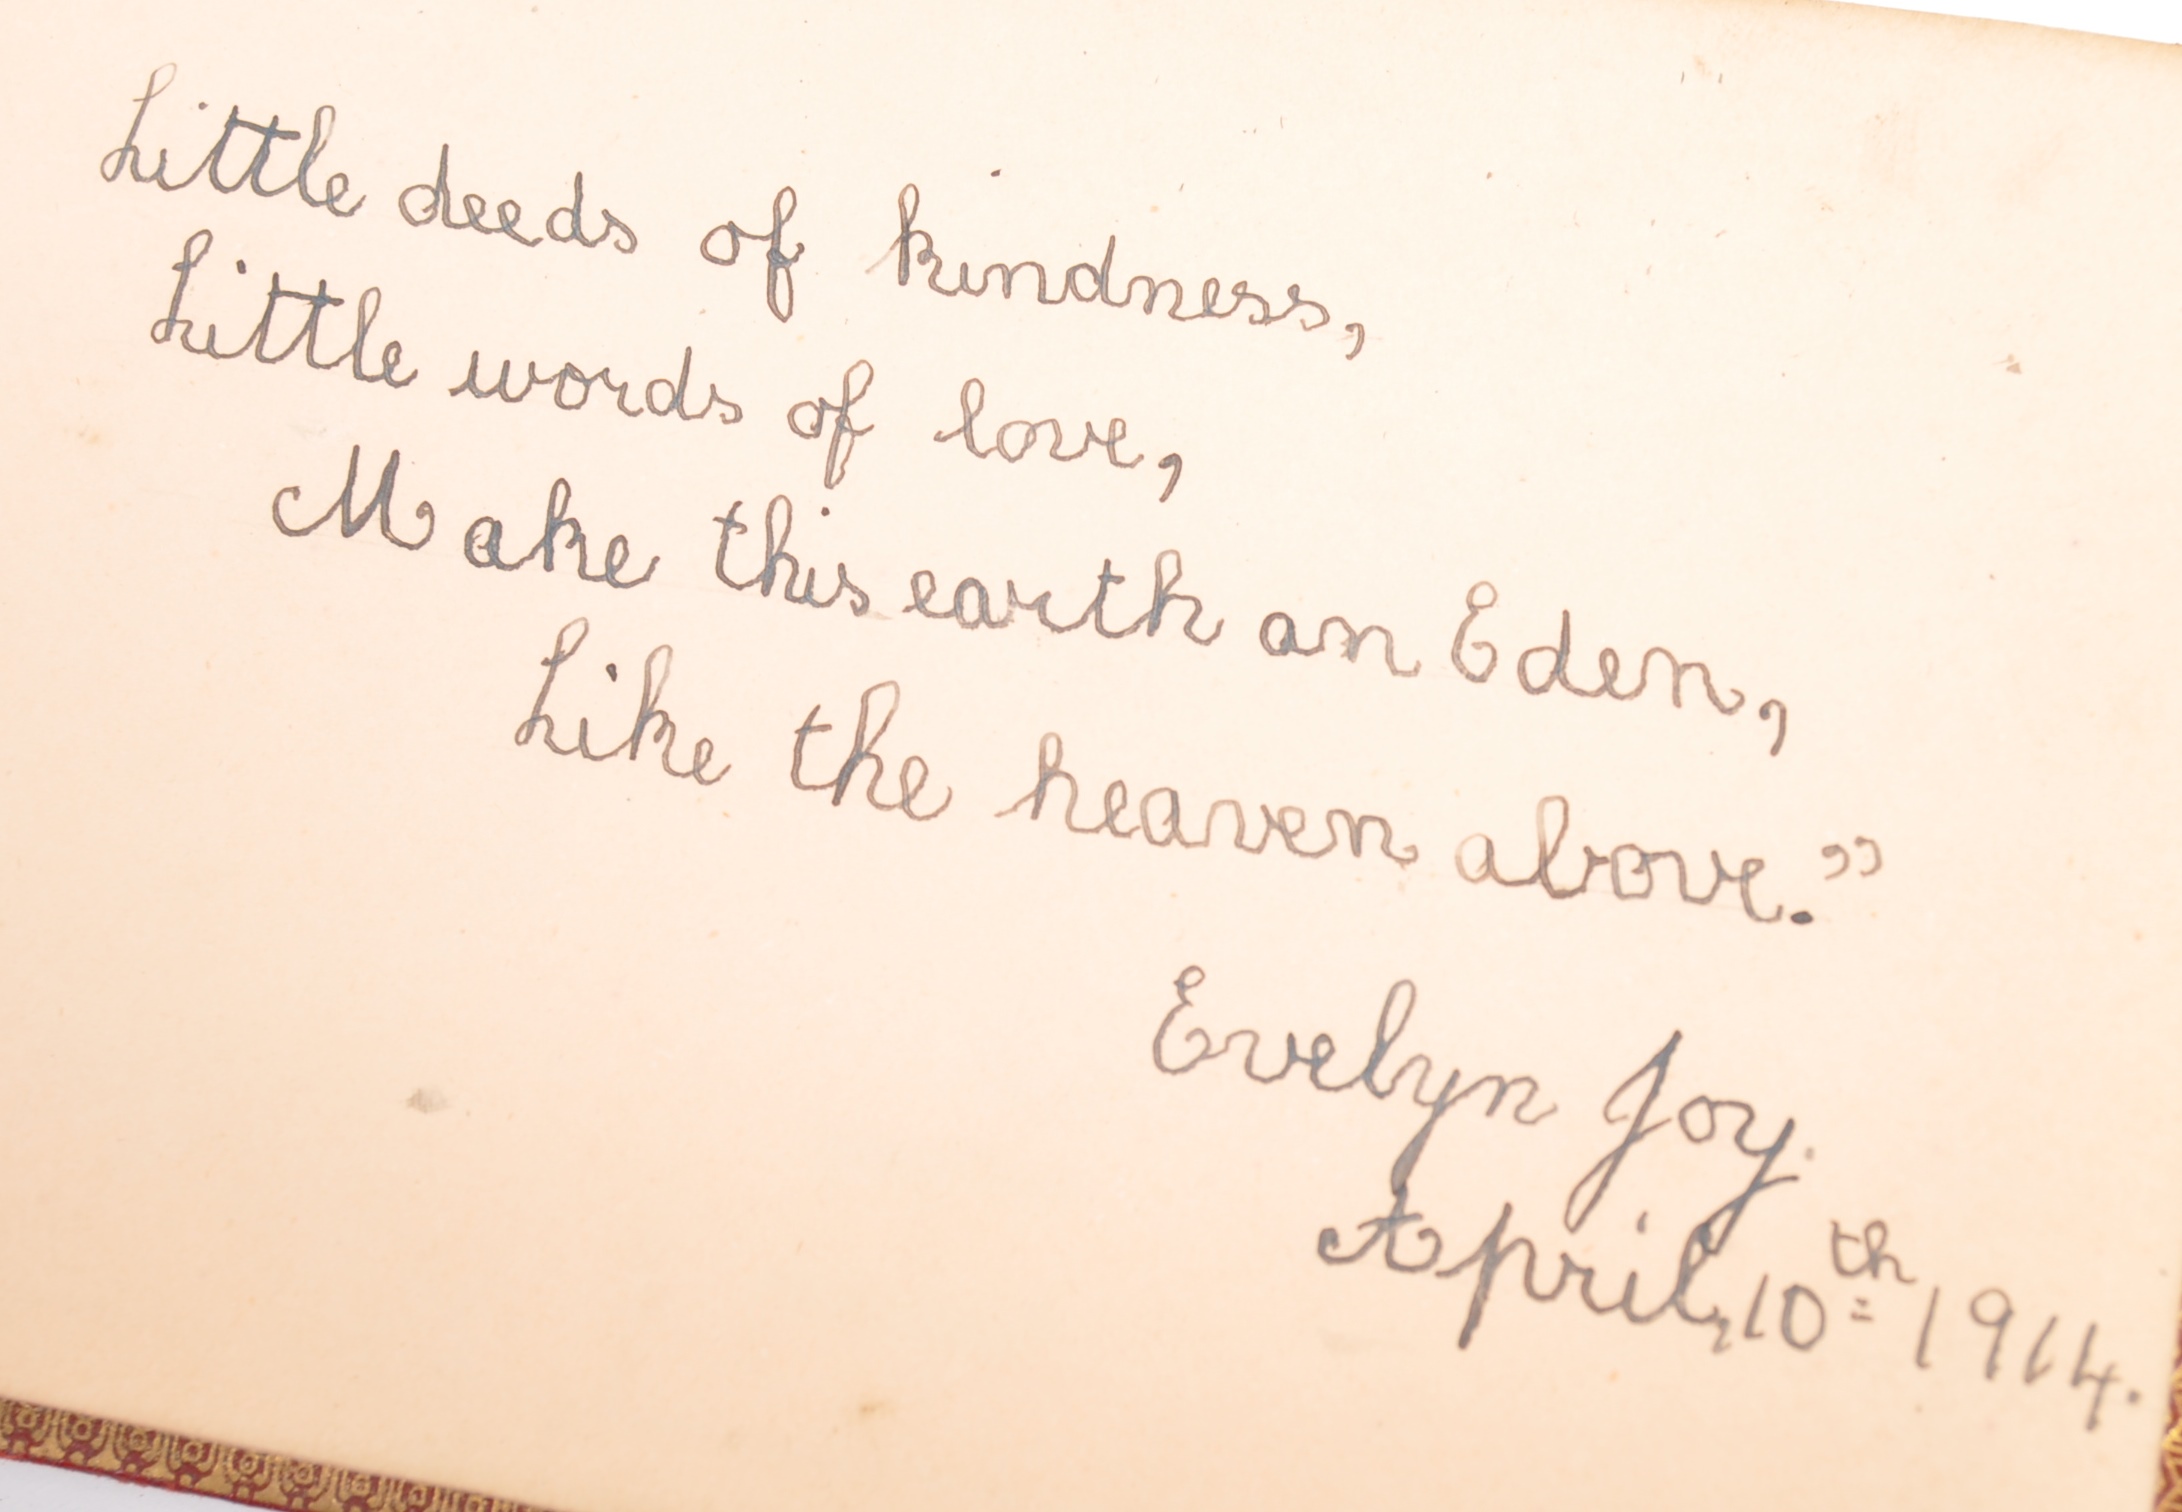 Little deeds of kindness,
Little words of love,
Make this earth an Eden,
Like the heaven above."
Evelyn Joy.
April, 10th 1914.